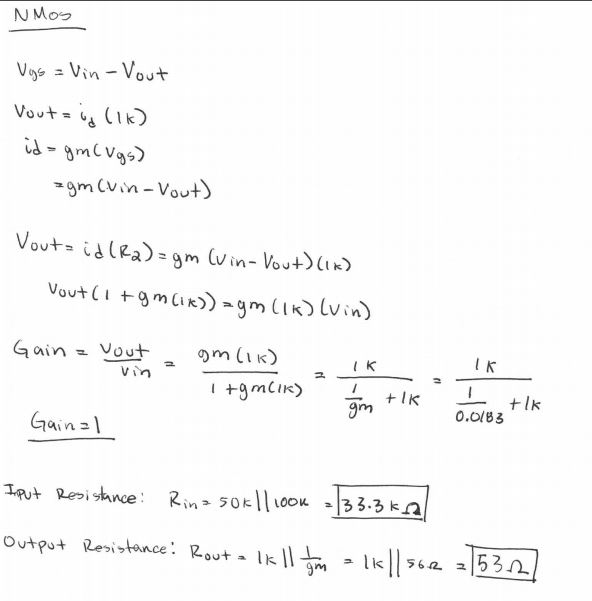 NMos
Vgs = Vin - Vout
Vout = id (1k)
id = gm(Vgs)
= gm(Vin - Vout)
Vout = id(R2) = gm (Vin - Vout)(1k)
Vout(1 + gm(1k)) = gm (1k)(Vin)
Gain = Vout/Vin = gm(1k)/(1 + gm(1k)) = 1k/(1/gm + 1k) = 1k/(1/0.0183 + 1k)
Gain = 1
Input Resistance: Rin = 50k||100k = 33.3kΩ
Output Resistance: Rout = 1k||1/gm = 1k||56Ω = 53Ω